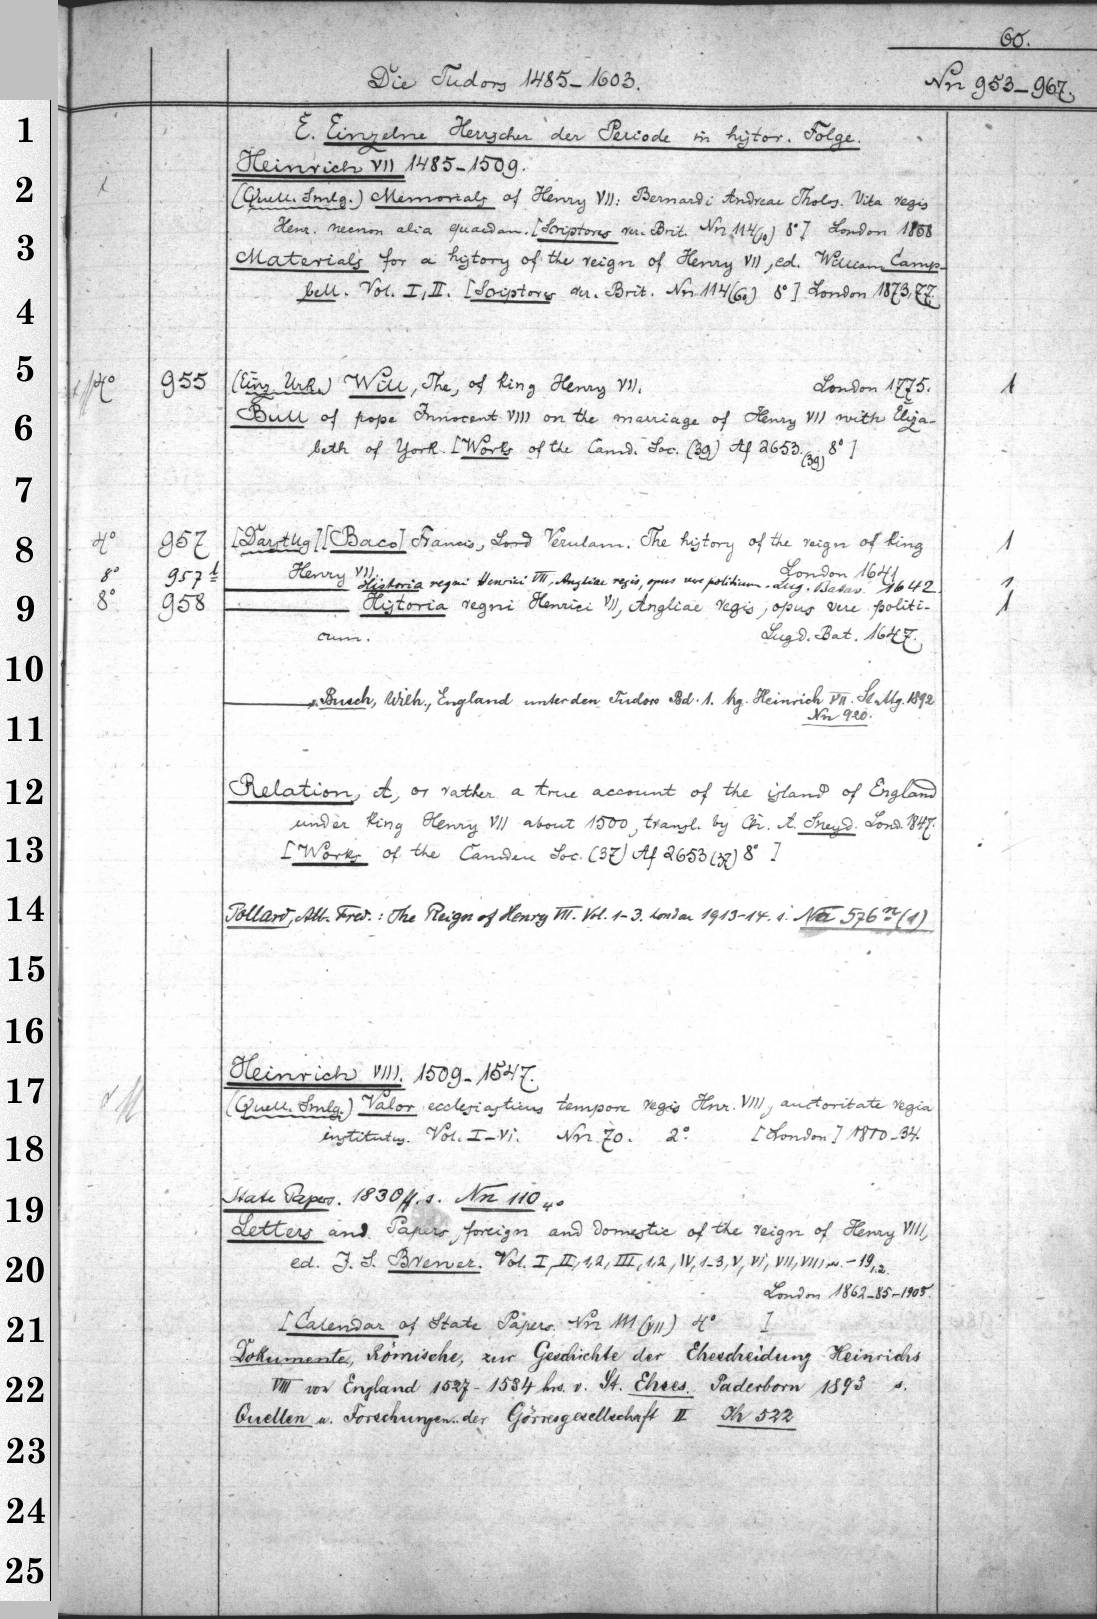 60.
Die Tudors 1485-1603.
Nn 953-967.
1
E. Einzelne Herrscher der Periode in histor. Folge.
Heinrich VII 1485-1509.
2
(Quell. Smlg.) Memorials of Henry VII: Bernardi Andreae Tholos. Vita regis
Henr. necnon alia quaedam. [Scriptores rer. Brit. Nn 114(10) 8° ] London 1858
3
Materials for a history of the reign of Henry VII, ed. William Camp-
bell. Vol. I, II. [Scriptores rer. Brit. Nn 114(60) 8° ] London 1873, 77.
4
5
4° 955 (Einz. Urk.) Will, The, of king Henry VII. London 1775. 1
6
Bull of pope Innocent VIII on the marriage of Henry VII with Eliza-
beth of York. [Works of the Camd. Soc. (39) Af 2653.(39) 8° ]
7
8
4° 957 [Darstllg] [Baco] Francis, Lord Verulam. The history of the reign of king 1
Henry VII. London 1641
8° 957b Historia regni Henrici VII, Angliae regis, opus vere politicum. Lug. Batav. 1642. 1
9
8° 958 Historia regni Henrici VII, Angliae regis, opus vere politi- 1
cum. Lugd. Bat. 1647.
10
Busch, Wilh., England unter den Tudors Bd. 1. Kg. Heinrich VII. Stuttg. 1892
Nn 920.
11
12
Relation, A, or rather a true account of the island of England
under king Henry VII about 1500, transl. by Ch. A. Sneyd. Lond. 1847.
13
[Works of the Camden Soc. (37) Af 2653(37) 8° ]
14
Pollard, Alb. Fred.: The Reign of Henry VII. Vol. 1-3. London 1913-14. s. Nn 576n(1)
15
16
17
Heinrich VIII. 1509-1547.
(Quell. Smlg.) Valor ecclesiasticus tempore regis Henr. VIII, auctoritate regia
18
institutus. Vol. I-VI. Nn 70. 2° [London] 1810-34.
19
State Papers. 1830 ff. s. Nn 110 4°
Letters and Papers, foreign and domestic of the reign of Henry VIII,
20
ed. J. S. Brewer. Vol. I, II,1,2, III,1,2, IV,1-3, V, VI, VII, VIII -19,1.2.
London 1862-85-1905.
21
[Calendar of State Papers. Nn 111(VII) 4° ]
Dokumente, Römische, zur Geschichte der Ehescheidung Heinrichs
22
VIII von England 1527-1534 hrs. v. St. Ehses. Paderborn 1893 s.
Quellen u. Forschungen.. der Görresgesellschaft II Ih 522
23
24
25